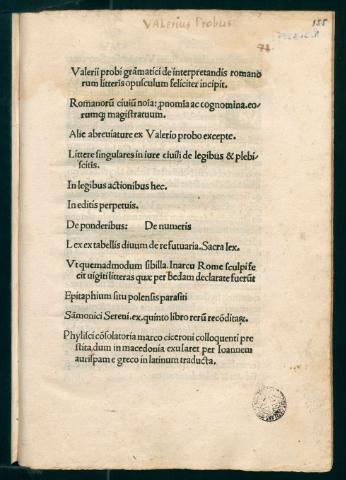 Valerius Probus
155
71
Valerii probi grãmatici de interpretandis romano
rum litteris opusculum feliciter incipit.
Romanorũ ciuiũ noĩa: pnomia ac cognomina. eo-
rumq; magistratuum.
Alie abreviature ex Valerio probo excepte.
Littere singulares in iure ciuili de legibus & plebi-
scitis.
In legibus actionibus hec.
In editis perpetuis.
De ponderibus: De numeris
Lex ex tabellis diuum de re futuaria. Sacra lex.
Vt quemadmodum sibilla. In arcu Rome sculpi fe
cit uigiti litteras quæ per bedam declarate fuerũt
Epitaphium situ polensis parasiti
Sãmonici Sereni. ex. quinto libro rerũ recõditaꝝ.
Phylisci cõsolatoria marco ciceroni colloquenti pre
stita, dum in macedonia exularet per Ioannem
aurispam e greco in latinum traducta.